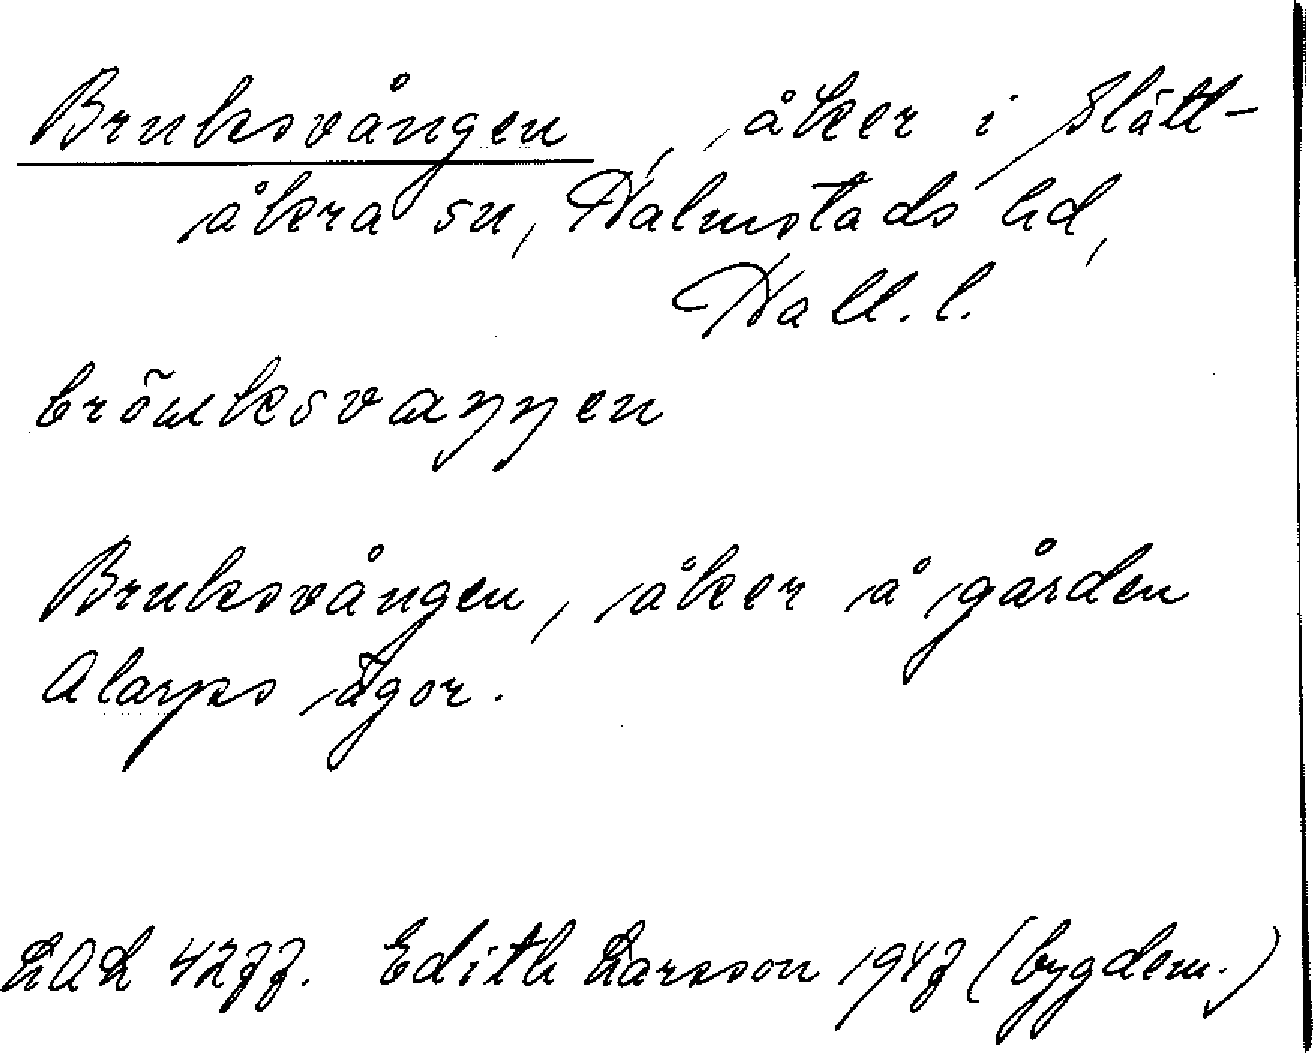 Bruksvången, åker i Slätt-
åkra sn, Halmstads hd,
Hall. l.
brõuksvaŋŋen
Bruksvången, åker å gården
Alarps ägor.
LAL 4277. Edith Larsson 1947 (bygdem.)